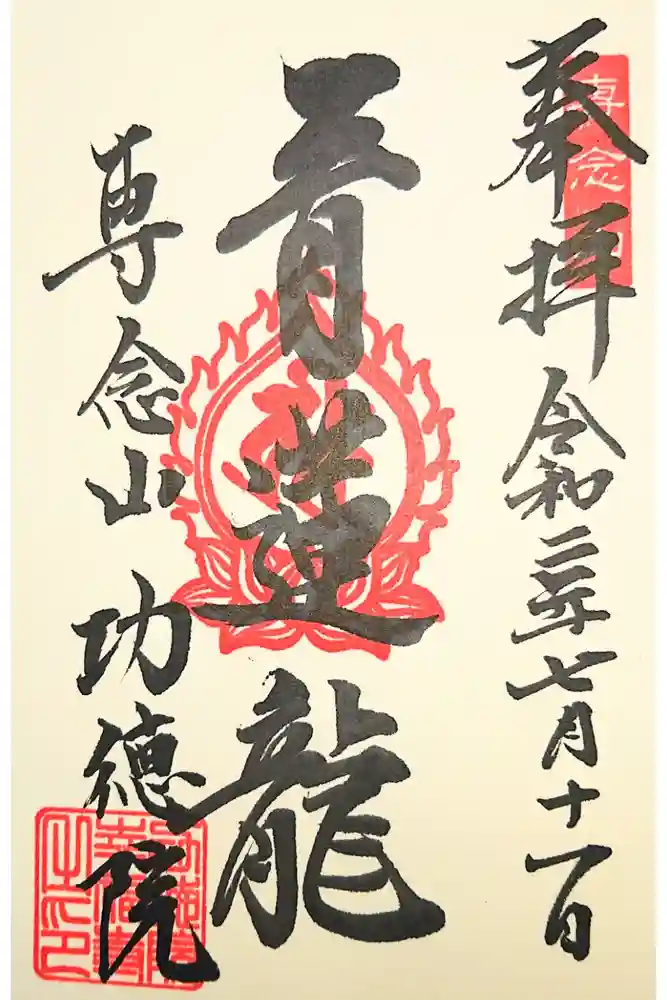 奉拝
令和二年七月十一日
青蓮龍
専念山
功徳院